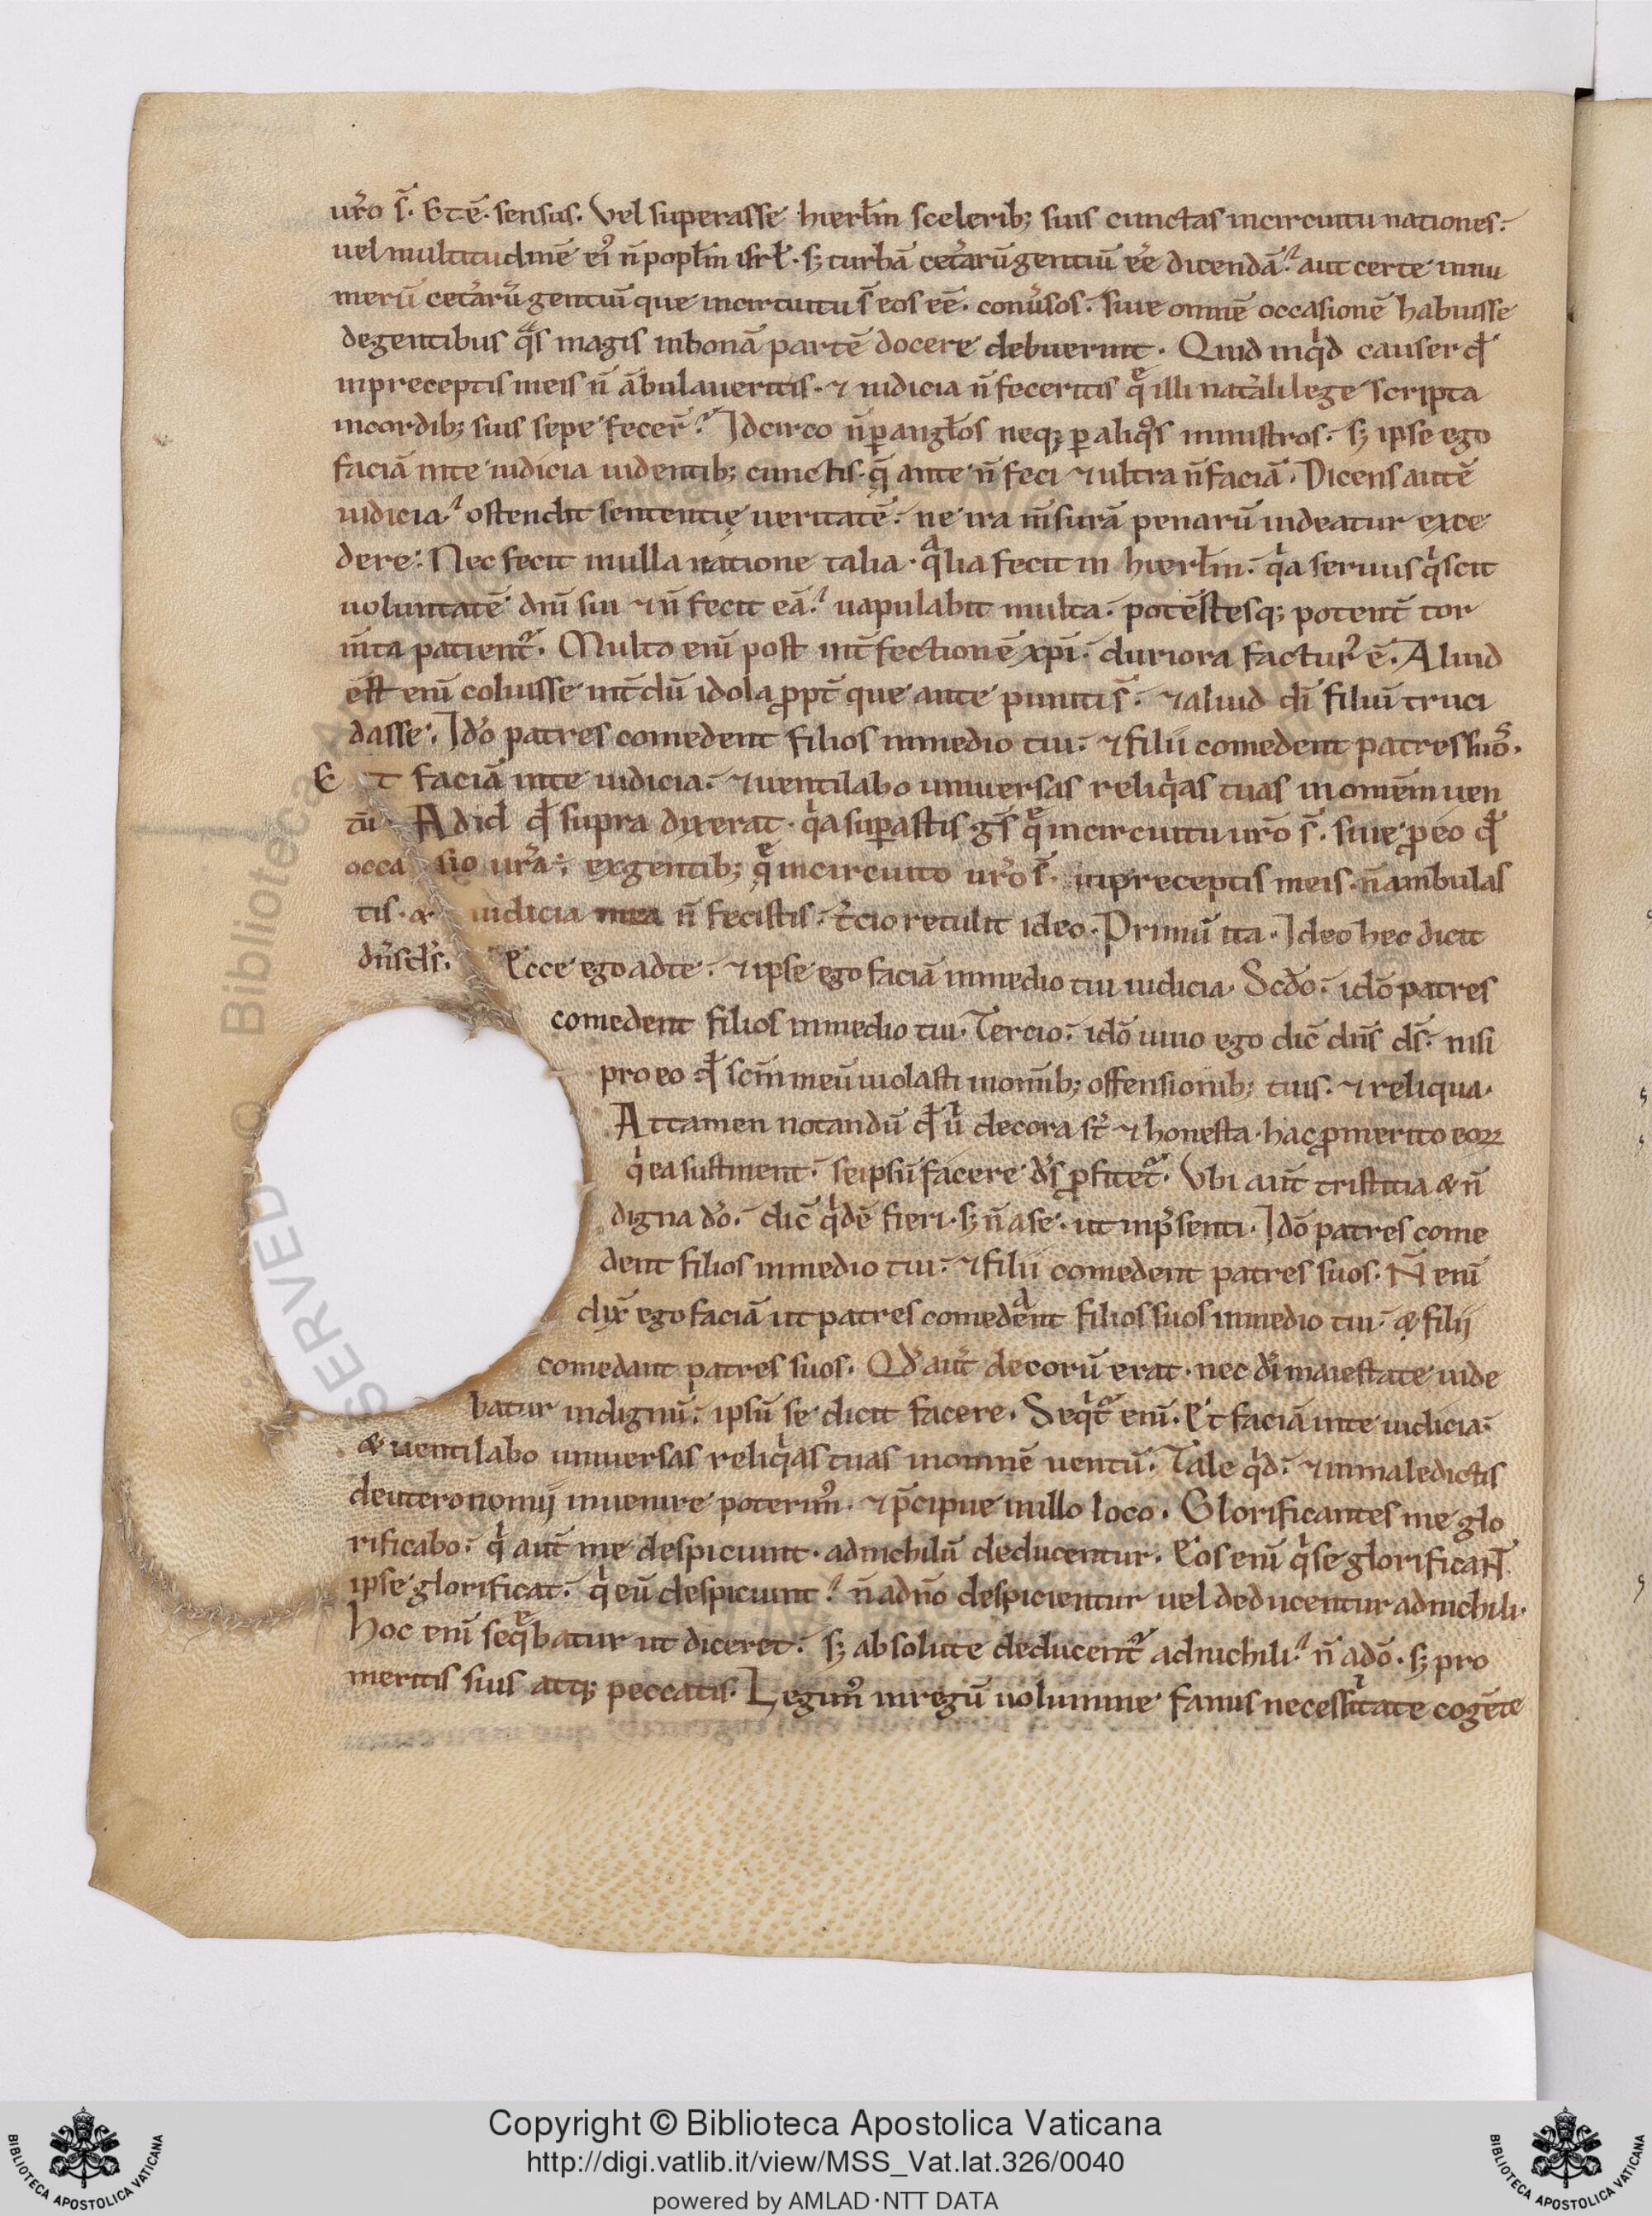 ur̄o s̄. Et ē. sensus. Vel superasse hierl̄m scelerib; suis cunctas incircuitu nationes.
uel multitudinē ei' n̄ popl̄m isrl̄. s; turbā cet͛arū gentiū ee͛ dicendā. aut certe innu
merū cet͛arū gentiū que incircuitu s̄ eos eē. conu͛sos. siue omnē occasionē habuisse
degentibus qͣs magis inbonā partē docere debuerunt. Quid inqͥd causer qđ
inpreceptis meis n̄ ābulaueritis. ⁊ iudicia n̄ feceritis qͤ illi natͥali lege scripta
incordib; suis sepe fecer̄. Idcirco n̄ ꝑ angl̄os neq; ꝑ aliqͦs ministros. s; ipse ego
faciā inte iudicia uidentib; cunctis. q̄ ante n̄ feci ⁊ ultra n̄ faciā. Dicens autē
iudicia ostendit sententię ueritatē. ne ira m̄surā penarū uideatur exce
dere. Nec fecit in ulla natione talia. qͣlia fecit in hierl̄m. qͥa seruus qͥ scit
uoluntatē dn̄i sui ⁊ n̄ fecit eā. uapulabit multa. potētesq; potent̄ tor
m̄ta patient͛. Multo eni͞ post int̄fectionē xp̄i. duriora factur' ē. Aliud
est eni͞ coluisse int̄dū idola ꝓpt̄ que ante puniti s̄. ⁊ aliud di͞ filiū truci
dasse. Ido͛ patres comedent filios inmedio tui. ⁊ filii comedent patres suo͛.
Et faciā inte iudicia. ⁊ uentilabo uniuersas reliqͥas tuas inomēm uen
tū. Ad id qđ supra dixerat. qͥa suꝑastis gs̄ qͤ incircuitu ur̄o s̄. siue ꝓ eo qđ
occasio ur̄a. exgentib; qͤ incircuito ur̄o s̄. inpreceptis meis. n̄ ambulas
tis. & iudicia mea n̄ fecistis. t͛cio retulit ideo. Primū ita. Ideo hec dicit
dn̄s ds̄. Ecce ego adte. ⁊ ipse ego faciā inmedio tui iudicia. Scdo͛. ido͞ patres
comedent filios inmedio tui. Tercio. ido͞ uiuo ego dic̄ dn̄s ds̄. nisi
pro eo qđ sc̄m meū uiolasti inomīb; offensionib; tuis. ⁊ reliqua.
Attamen notandū qđ u͛ decora st̄ ⁊ honesta. hac ꝓ merito eoꝝ
qͥ ea sustinent. seipsū facere ds̄ ꝓfitet͛. Vbi aut̄ tristitia & n̄
digna do͛. dic̄ qͥdē fieri. s; n̄ ase. ut inp̄senti. Ido͞ patres come
dent filios inmedio tui. ⁊ filii comedent patres suos. N̄ eni͞
dix̄ ego faciā ut patres comedant filios suos inmedio tui. & filii
comedant patres suos. Qđ aut̄ decorū erat. nec di͛ maiestate uide
batur indignū. ipsū se dicit facere. Seqͥt͛ eni͞. Et faciā inte iudicia.
& uentilabo uniuersas reliqͥas tuas inomnē uentū. Tale qͥd. ⁊ inmaledictis
deuteronomij inuenire poterim'. ⁊ p̄cipue inillo loco. Glorificantes me glo
rificabo. qͥ aut̄ me despiciunt. adnichilū deducentur. Eos eni͞ qͥ se glorificant
ipse glorificat. qͥ eū despiciunt n̄ adn̄o despicientur uel deducentur adnichili.
Hoc eni͞ seqͤbatur ut diceret. s; absolute deducent͛ adnichili. n̄ ado͞. s; pro
meritis suis atq; peccatis. Legim' inregū uolumine famis necessitate cogēte
Copyright © Biblioteca Apostolica Vaticana
http://digi.vatlib.it/view/MSS_Vat.lat.326/0040
powered by AMLAD·NTT DATA
BIBLIOTECA APOSTOLICA VATICANA
BIBLIOTECA APOSTOLICA VATICANA